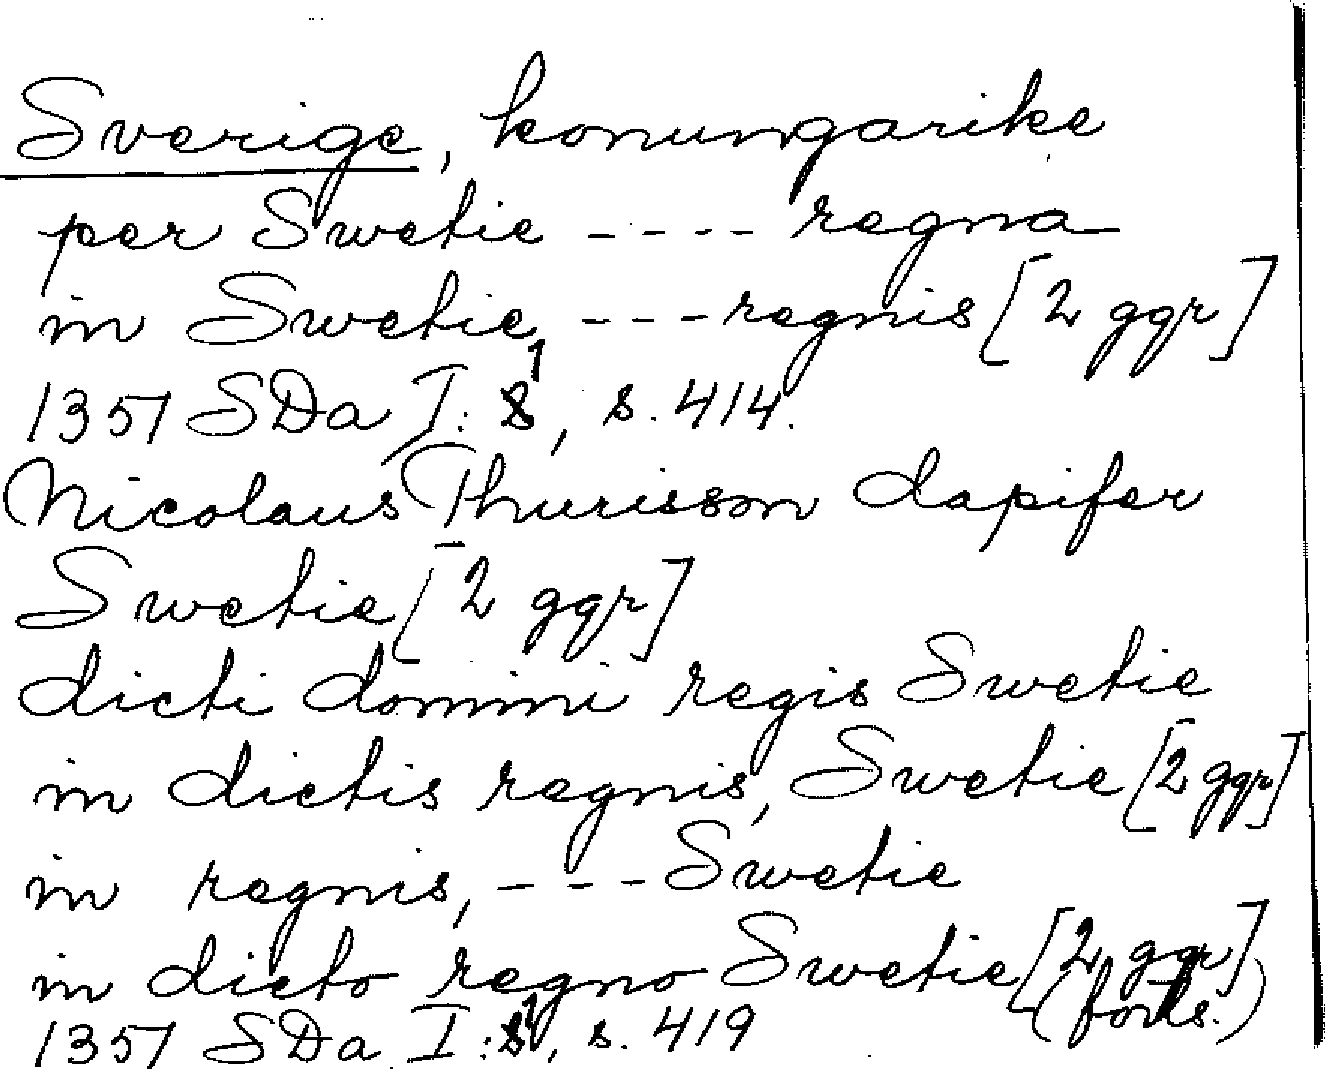 Sverige, konungarike
per Swetie ---- regna
in Swetie, --- regnis [2 ggr]
1357 SDa I: 1, s. 414.
Nicolaus Thurisson dapifer
Swetie [2 ggr]
dicti domini regis Swetie
in dictis regnis, Swetie [2 ggr]
in regnis, --- Swetie
in dicto regno Swetie [2 ggr]
(forts.)
1357 SDa I: 1, s. 419